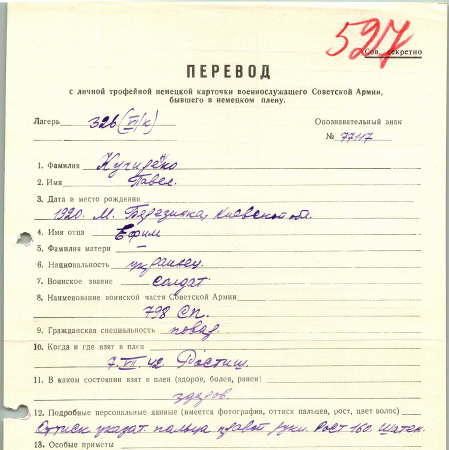 527
Сов. секретно
ПЕРЕВОД
с личной трофейной немецкой карточки военнослужащего Советской Армии,
бывшего в немецком плену.
Лагерь 326 (VI/к) Опознавательный знак
№ 77117
1. Фамилия Кучиренко
2. Имя Павел.
3. Дата и место рождения
1920. М. Березинка, Киевской обл.
4. Имя отца Ефим
5. Фамилия матери —
6. Национальность украинец.
7. Воинское звание солдат
8. Наименование воинской части Советской Армии
798 СП.
9. Гражданская специальность повар
10. Когда и где взят в плен
7.VII.42
11. В каком состоянии взят в плен (здоров, болен, ранен)
здоров.
12. Подробные персональные данные (имеется фотография, оттиск пальцев, рост, цвет волос)
Оттиск указат. пальца правой руки. Рост 160. Шатен.
13. Особые приметы